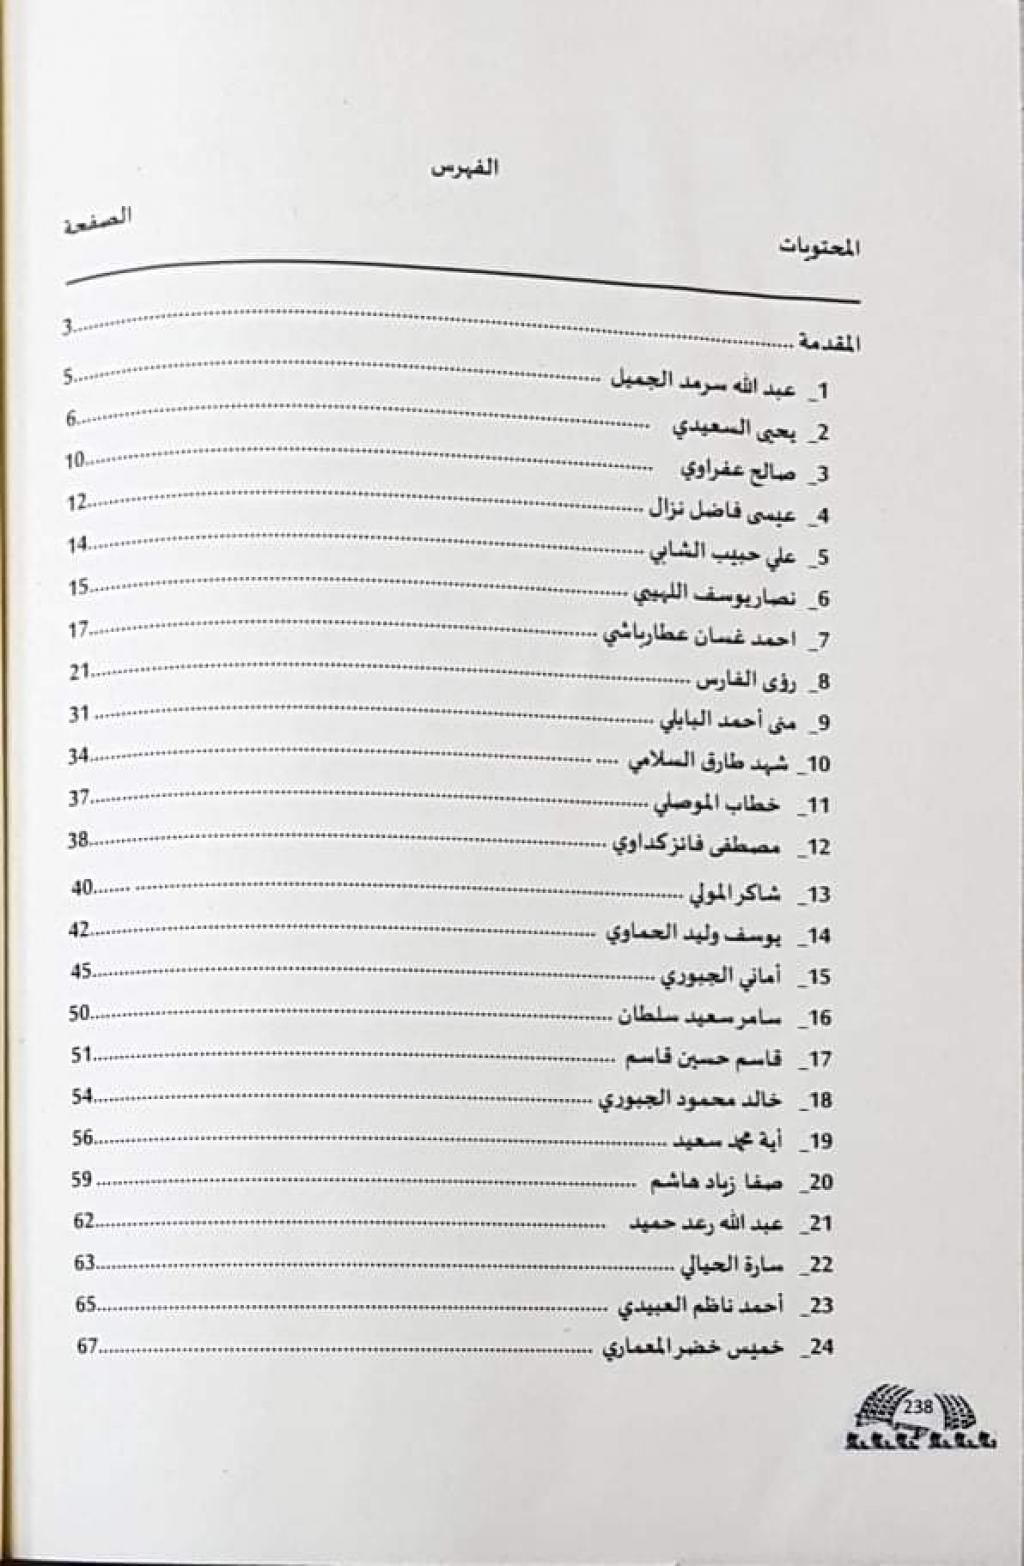 الفهرس
المحتويات الصفحة
المقدمة ........ 3
1_ عبد الله سرمد الجميل ........ 5
2_ يحيى السعيدي ........ 6
3_ صالح عفراوي ........ 10
4_ عيسى فاضل نزال ........ 12
5_ علي حبيب الشابي ........ 14
6_ نصار يوسف اللهيبي ........ 15
7_ احمد غسان عطارباشي ........ 17
8_ رؤى الفارس ........ 21
9_ منى أحمد البابلي ........ 31
10_ شهد طارق السلامي ........ 34
11_ خطاب الموصلي ........ 37
12_ مصطفى فائز كداوي ........ 38
13_ شاكر المولي ........ 40
14_ يوسف وليد الحماوي ........ 42
15_ أماني الجبوري ........ 45
16_ سامر سعيد سلطان ........ 50
17_ قاسم حسين قاسم ........ 51
18_ خالد محمود الجبوري ........ 54
19_ أية محمد سعيد ........ 56
20_ صفا زياد هاشم ........ 59
21_ عبد الله رعد حميد ........ 62
22_ سارة الحيالي ........ 63
23_ أحمد ناظم العبيدي ........ 65
24_ خميس خضر المعماري ........ 67
238